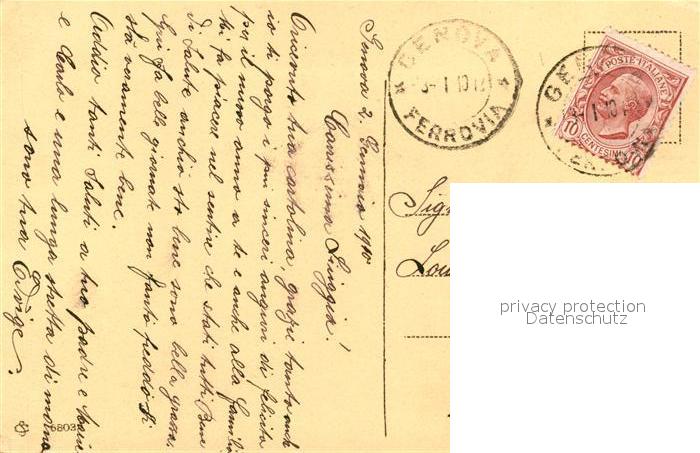 Genova 2. Gennaio 1910
Carissima Luiggia!
Ricevuto tua cartolina, grazie tanto anch
io ti porgo i piu sinceri auguri di felicita
per il nuovo anno a te e anche alla famiglia
mi fa piacere nel sentire che stati tutti Bene
di salute anchio sto bene sono bella grassa.
Qui fa belle giornate non fanti freddo si
sta veramente bene.
Addio tanti saluti a tuo padre e
e Carlo e una lunga stretta di mano
sono tua Edvige.
6803
GENOVA
3-1 10
FERROVIA
GENOVA
POSTE ITALIANE
10 CENTESIMI 10
Sig
Lou
privacy protection
Datenschutz